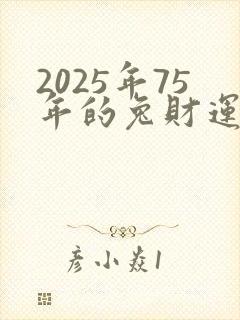 2025年75
年的兔財運
彦小焱1